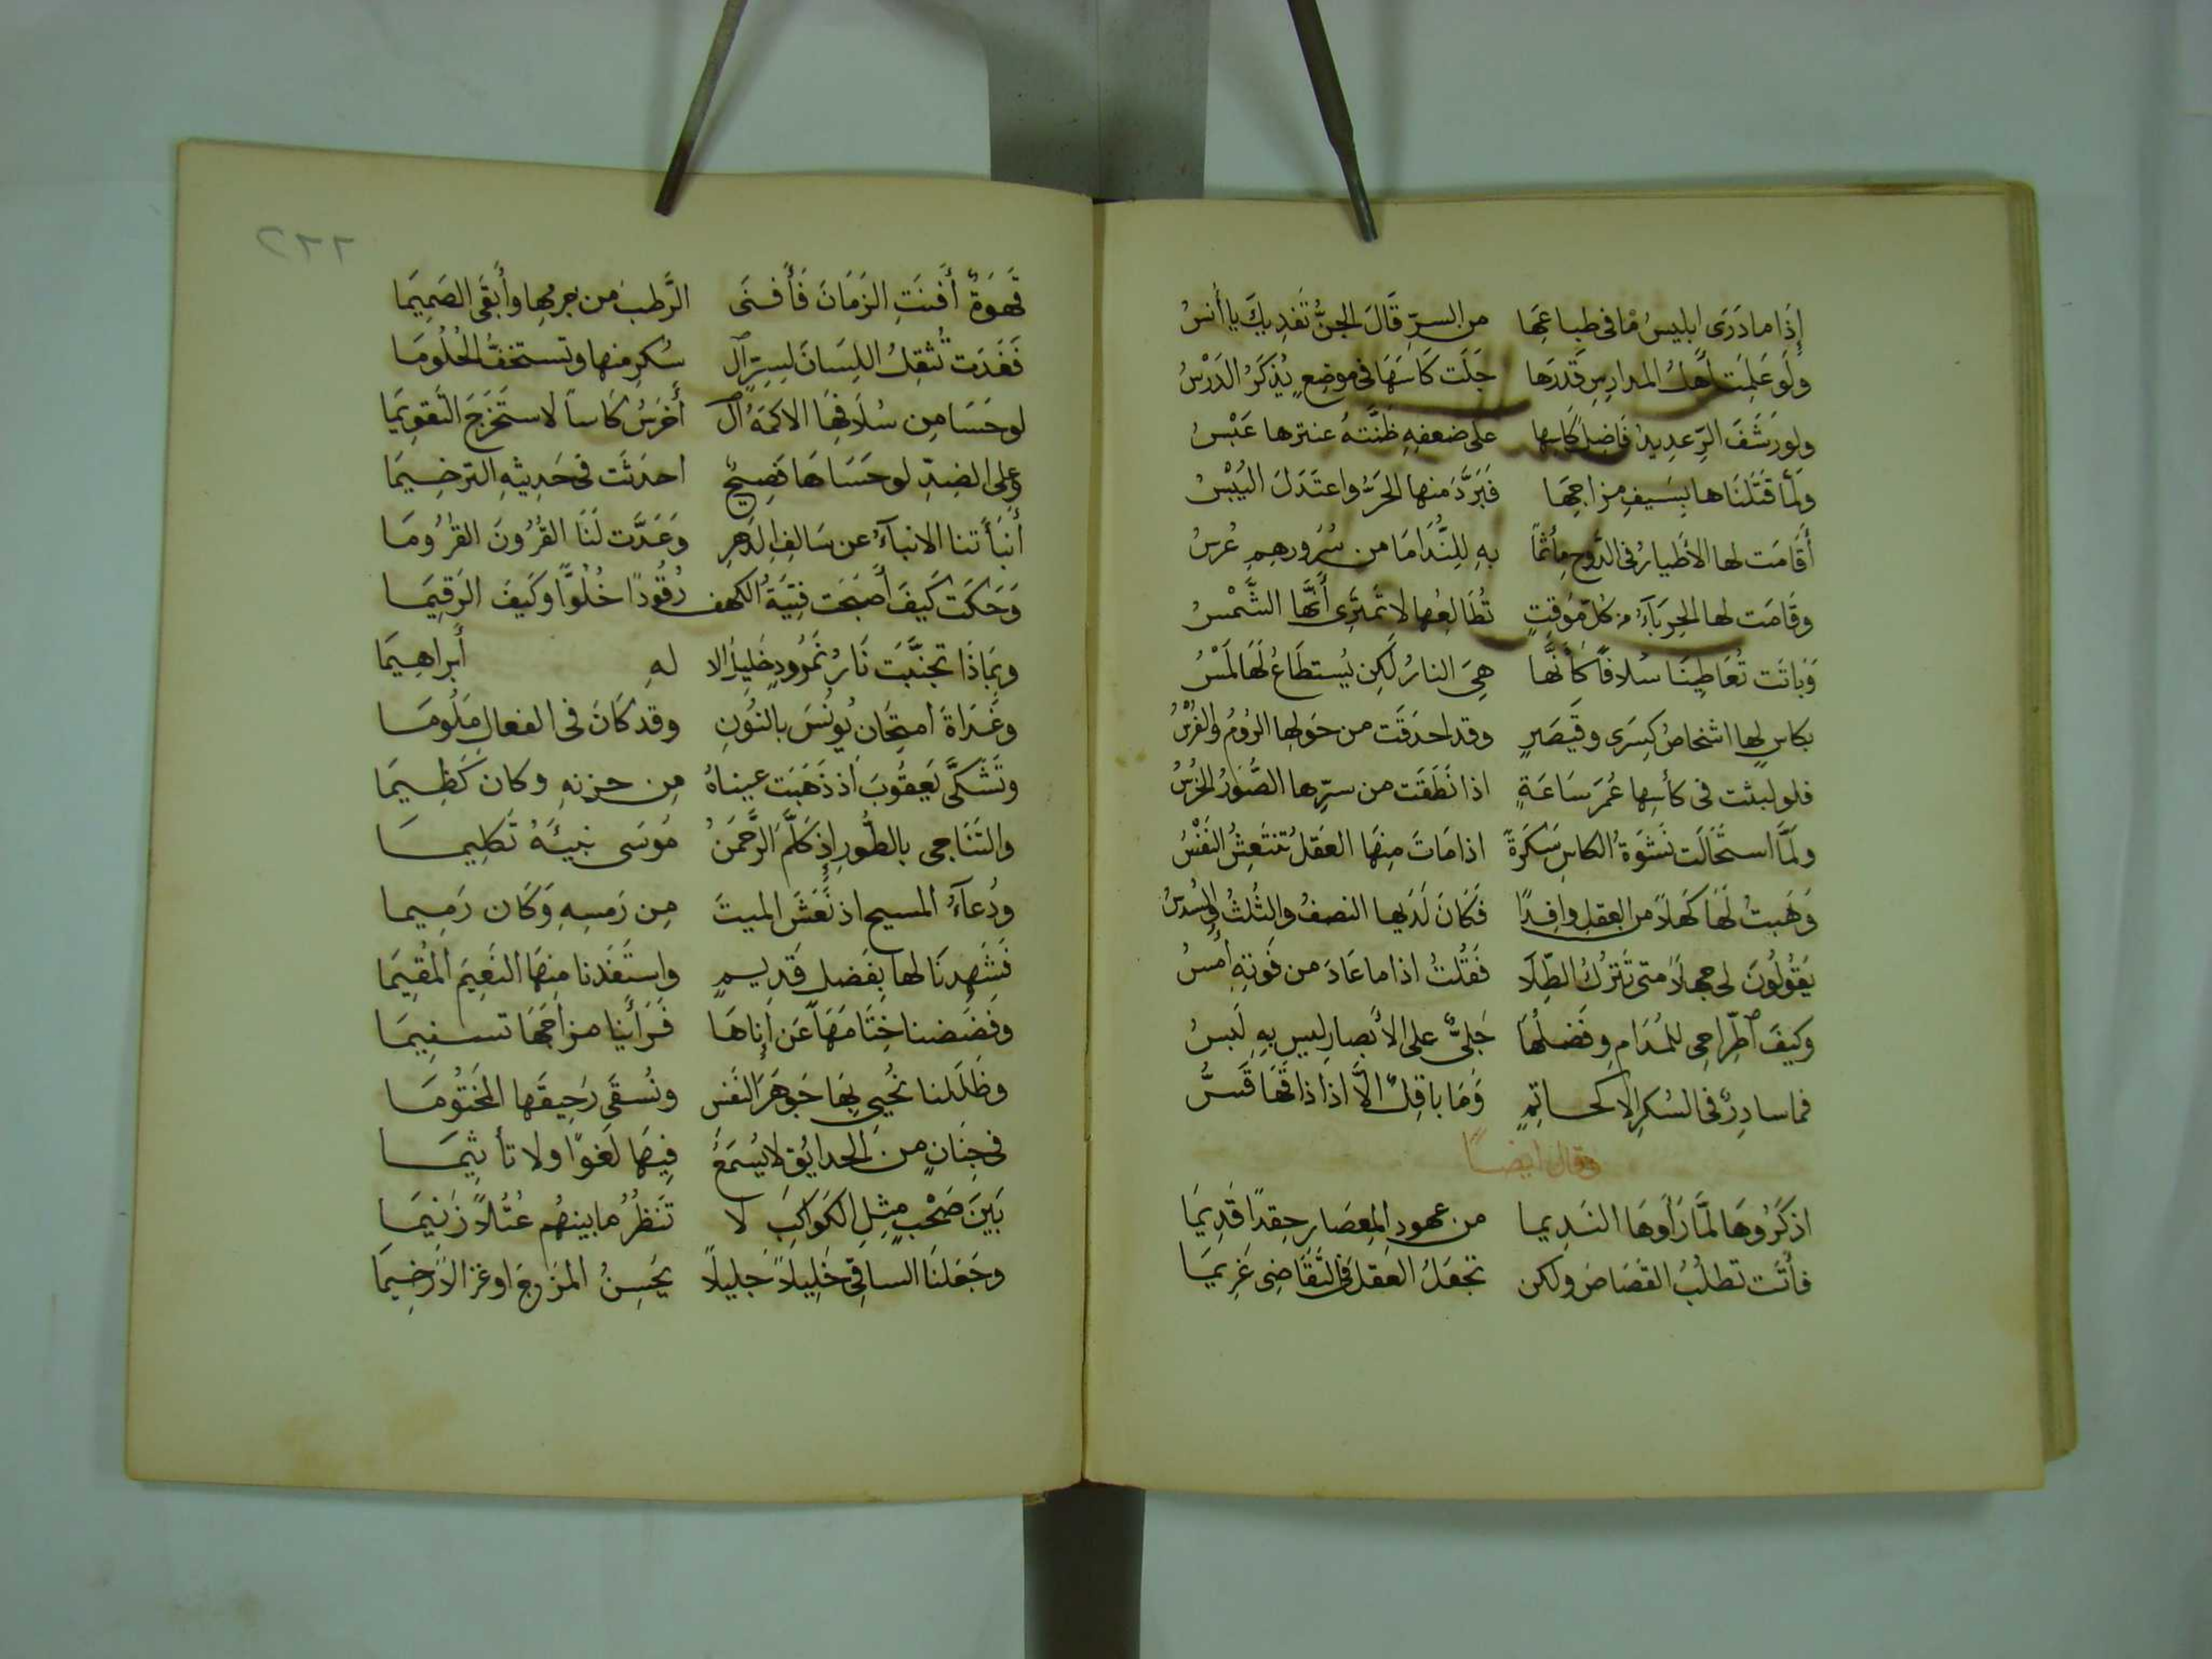 إِذَا مادَرَى ابليسُ مَا فى طباعِها من السرِّ قَالَ الجنُّ تَفديكَ يا أَنسُ
ولَو عَلِمَت أَهلُ المدارِسِ قَدرَها جَلَت كَاسَهَا فى موضِعٍ يُذكَرُ الدَرْسُ
ولو رَشَفَ الرِّعدِيدُ فَاضِلَ كَاسِها على ضعفِهِ ظَنَّتهُ عنترَها عَبْسُ
ولَمّا قَتَلنَاها بِسَيفِ مزاجِها فَبَرَّدَ منها الحَرَّ واعتَدَلَ اليُبْسُ
أَقَامَت لها الأَطيارُ فى الدَوحِ مأتماً بهِ لِلنُّدَامَا من سُرورهِم عُرسُ
وقَامَت لها الحِربَآءُ من كُلّ مَوقِفٍ تُطَالِعُها لا تَمتَرِى أَنَّها الشَّمْسُ
وَبَاتَت تُعَاطِينَا سُلافًا كَأَنَّها هِىَ النارُ لَكِن يُستطَاعُ لَهَا لَمْسُ
بكاسٍ لها اشخاصُ كِسرَى وقَيصَرٍ وقد احدَقَت من حَولِها الرُومُ والفُرْسُ
فلو لبثت فى كأسِها عُمرَ سَاعَةٍ اذا نَطَقَت من سرِّها الصُّوَرُ الخُرْسُ
ولَمَّا استَحَالَت نَشوَةُ الكاسِ سَكرَةً اذا مَاتَ مِنهَا العَقلُ تَنتَعِشُ النَفْسُ
وَهَبتُ لَهَا كَهلاً من العقلِ وافِدًا فَكَانَ لَدَيها النصفُ والثُلثُ والسُدسُ
يَقُولُونَ لى جهلاً متى تَترُكُ الطِّلَا فَقُلتُ اذا ما عَادَ من فَوتِهِ أَمسُ
وكيفَ اطِّراحِى للمُدَامِ وفَضلُهَا جَلىٌّ على الأَبصارِ ليس بهِ لَبسُ
فما سادِرٌ فى السُكرِ الا كحاتِمٍ وَمَا باقِلٌ الَّا اذا ذاقَهَا قَسُّ
وقال ايضًا
اذكَرُوهَا لَمَّا رَأَوهَا النَديما من عهودِ المِعصَارِ حِقدًا قَدِيمَا
فأَتَت تطلُبُ القَصَاصَ ولكن تَجعَلُ العَقلَ فى التَقَاضِى غَرِيمَا
٢٦٦
قَهوَةٌ أَفنَتِ الزَمَانَ فَأَفنَى الرَّطبَ من جرمِها وأَبقَى الصَمِيمَا
فَغَدَت تُثقِلُ اللِسَانَ لِسِرّ ٱل سُكرِ منها وتستخفُّ الحُلُومَا
لو حَسَا مِن سُلَافِهَا الاكمَهُ ٱل أَخرَسُ كَاساً لاستَخرَجَ التَقوِيمَا
وعلى الضِدِّ لو حَسَاهَا فَصِيحٌ احدَثَت فى حَدِيثِهِ الترخِيمَا
أَنبَأَتنا الانبآءُ عن سَالِفِ الدَهرِ وَعَدَّت لَنَا القُرُونَ القُرُومَا
وَحَكَت كَيفَ أَصبَحَت فِتيَةُ الكهف رُقُودًا خُلُوًّا وكَيفَ الرَقِيمَا
وبِمَاذَا تَجنَّبَت نَارُ نَمرُودٍ خَلِيلَ الا لهِ أَبراهِيمَا
وغَدَاةَ امتِحَانِ يُونُسَ بالنُونِ وقد كَانَ فى الفعالِ مَلُومَا
وتَشَكَّى يَعقُوبَ اذ ذَهَبَت عيناهُ مِن حزنهِ وكان كَظِيمَا
والتَنَاجى بالطُورِ إِذ كَلَّمَ الرَّحمَنُ مُوسَى نبيَّهُ تَكلِيما
ودُعآءَ المسيحِ اذ نَعَشَ الميتَ مِن رَمسِهِ وَكَان رَمِيما
فَشَهِدنَا لها بِفَضلٍ قَدِيمٍ واستَفَدنا مِنهَا النَعِيمَ المُقِيمَا
وفَضَضنا خِتَامَهَا عَن إِنَاهَا فَرَأَينا مزاجَهَا تسنِيمَا
وظَلَلنا نُحيِى بِهَا جَوهَرَ النَفسِ ونُسقَى رَحِيقَها المَختُومَا
فى جِنَانٍ من الحدايُقِ لايُسمَعُ فِيهَا لَغوًا ولا تأثِيمَا
بَينَ صَحْبٍ مِثلِ الكَوَاكِبِ لا تَنظُرُ مابينهُم عُتُلاً زَنِيمَا
وجَعَلنَا الساقِىَ خَلِيلاً جَلِيلاً يَحسِنُ المَزجَ او غزالاً رَخِيمَا